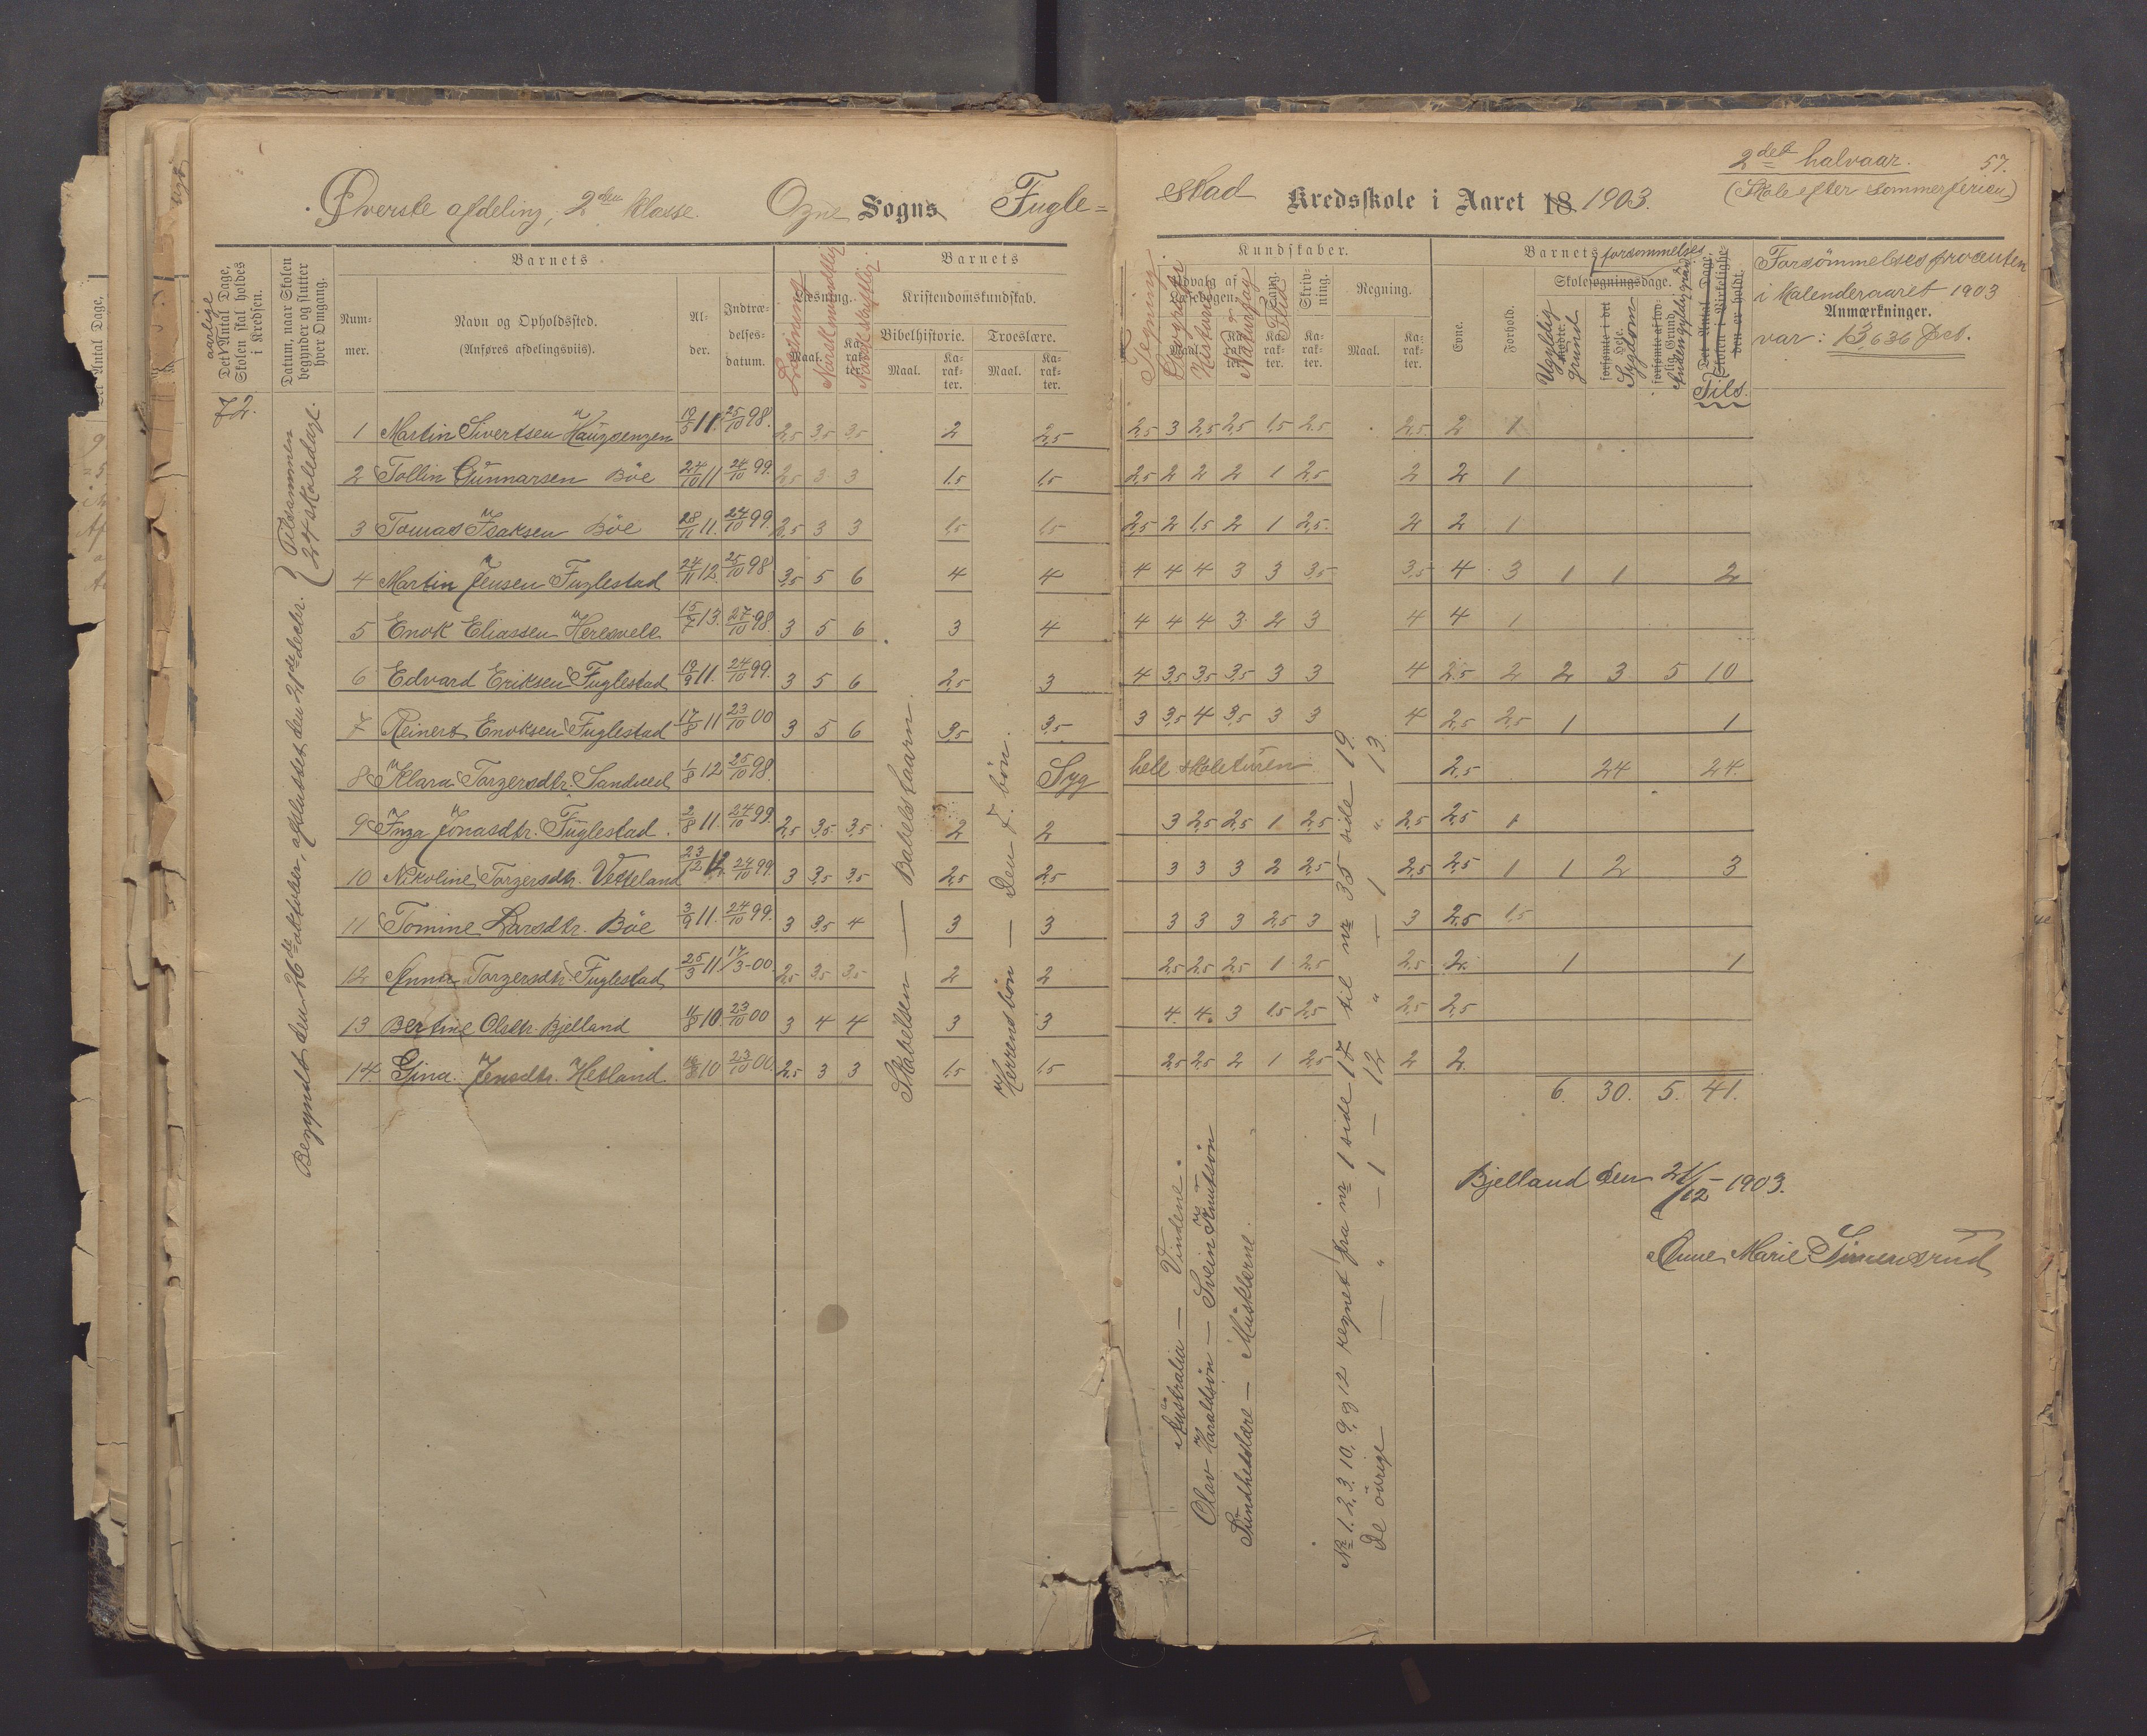 2det halvaar. 57.
(Skole efter sommerferien)
Øverste afdeling, 2den klasse. Ogne Sogns Fugle=
stad Kredsskole i Aaret 18 1903.
aarlige
Det Antal Dage, Skolen skal holdes i Kredsen.
Datum, naar Skolen begynder og slutter hver Omgang.
Barnets
Num-mer.
Navn og Opholdssted.
(Anføres afdelingsviis).
Al-der.
Indtræ-delses-datum.
Barnets
Læsning.
Maal. Ka-rak-ter.
Norsk mundtlig
Norsk skriftlig.
Kristendomskundskab.
Bibelhistorie. Troeslære.
Maal. Ka-rak-ter. Maal. Ka-rak-ter.
Kundskaber.
Tegning.
Udvalg af Læsebogen.
Geografi
Historie
Naturfag
Sang.
Flid
Skriv-ning.
Regning.
Maal. Ka-rak-ter.
Barnets forsømmelses
Evne.
Forhold.
Skolesøgningsdage.
Ugyldig grund
forsømte i det Hele.
Sygdom
forsømte af lov-lig Grund.
Anden gyldig grund
Det Antal Dage, Skolen i Virkelighe-den er holdt.
Tils.
Forsömmelsesprocenten
i kalenderaaret 1903
Anmærkninger.
var: 13,636 pct.
72.
Begyndt den 26de oktober, afsluttet den 21de decbr. { Tilsammen 24 skoledage.
1 Martin Sivertsen Haugsengen 19/5 11. 25/10 98. 2,5 3,5 3,5 2 2,5 2,5 3 2,5 2,5 1,5 2,5 2,5 2 1
2 Tollin Gunnarsen Böe 24/10 11 24/10 99. 2,5 3 3 1,5 1,5 2,5 2 2 2 1 2,5 2 2 1
3 Tomas Isaksen Böe 28/11 11. 24/10 99. 2,5 3 3 1,5 1,5 2,5 2 1,5 2 1 2,5. 2 2 1
4 Martin Jensen Fuglestad 24/11 12. 25/10 98 3,5 5 6 4 4 4 4 4 3 3 3,5 3,5 4 3 1 1 2
5 Enok Eliassen Heresvele 15/7 13. 27/10 98. 3 5 6 3 4 4 4 4 3 2 3 4 4 1
6 Edvard Eriksen Fuglestad 19/9 11. 24/10 99. 3 5 6 2,5 3 4 3,5 3,5 3,5 3 3 4 2,5 2 2 3 5 10
7 Reinert Enoksen Fuglestad 17/8 11 23/10 00 3 5 6 3,5 3,5 3 3,5 4 3,5 3 3 4 2,5 2,5 1 1
8 Klara Torgersdtr. Sandved 1/8 12 25/10 98. Syg hele skoleturen 2,5 24 24.
9 Inga Jonasdtr. Fuglestad. 2/8 11. 24/10 99. 2,5 3,5 3,5 2 2 3 2,5 2,5 1 2,5 2,5 2,5 1
10 Nikoline Torgersdtr. Vetteland 23/12 12. 24/10 99. 3 3,5 3,5 2,5 2,5 3 3 3 2 2,5 2,5 2,5 1 1 2 3
11 Tomine Larsdtr. Böe 3/9 11. 24/10 99. 3 3,5 4 3 3 3 3 3 2,5 3 3 2,5 1,5
12 Anna Torgersdtr. Fuglestad 25/3 11. 17/3-00 2,5 3,5 3,5 2 2 2,5 2,5 2,5 1 2,5 2,5 2. 1 1
13 Bertine Olsdtr. Bjelland 4/8 10. 23/10 00 3 4 4 3 3 4. 4. 3 1,5 2,5 2,5 2,5
14. Gina Jensdtr. Hetland 10. 23/10 00. 2,5 3 3 1,5 1,5 2,5 2,5 2 1 2,5 2 2.
6. 30. 5. 41.
Skabelsen — Babelstaarn.
Herrens bön — Den 7. bön.
Australia — Vindene.
Olav Haraldsön — Svein Knutsön
Sundhedslære — Musklerne.
Nr 1. 2, 3. 10, 9, og 12 regnet fra nr 1 side 17 til nr 35 side 19.
De övrige — " — 1 — 12 " — 1 " 13.
Bjelland den 21/12 - 1903.
Anne Marie Simensrud